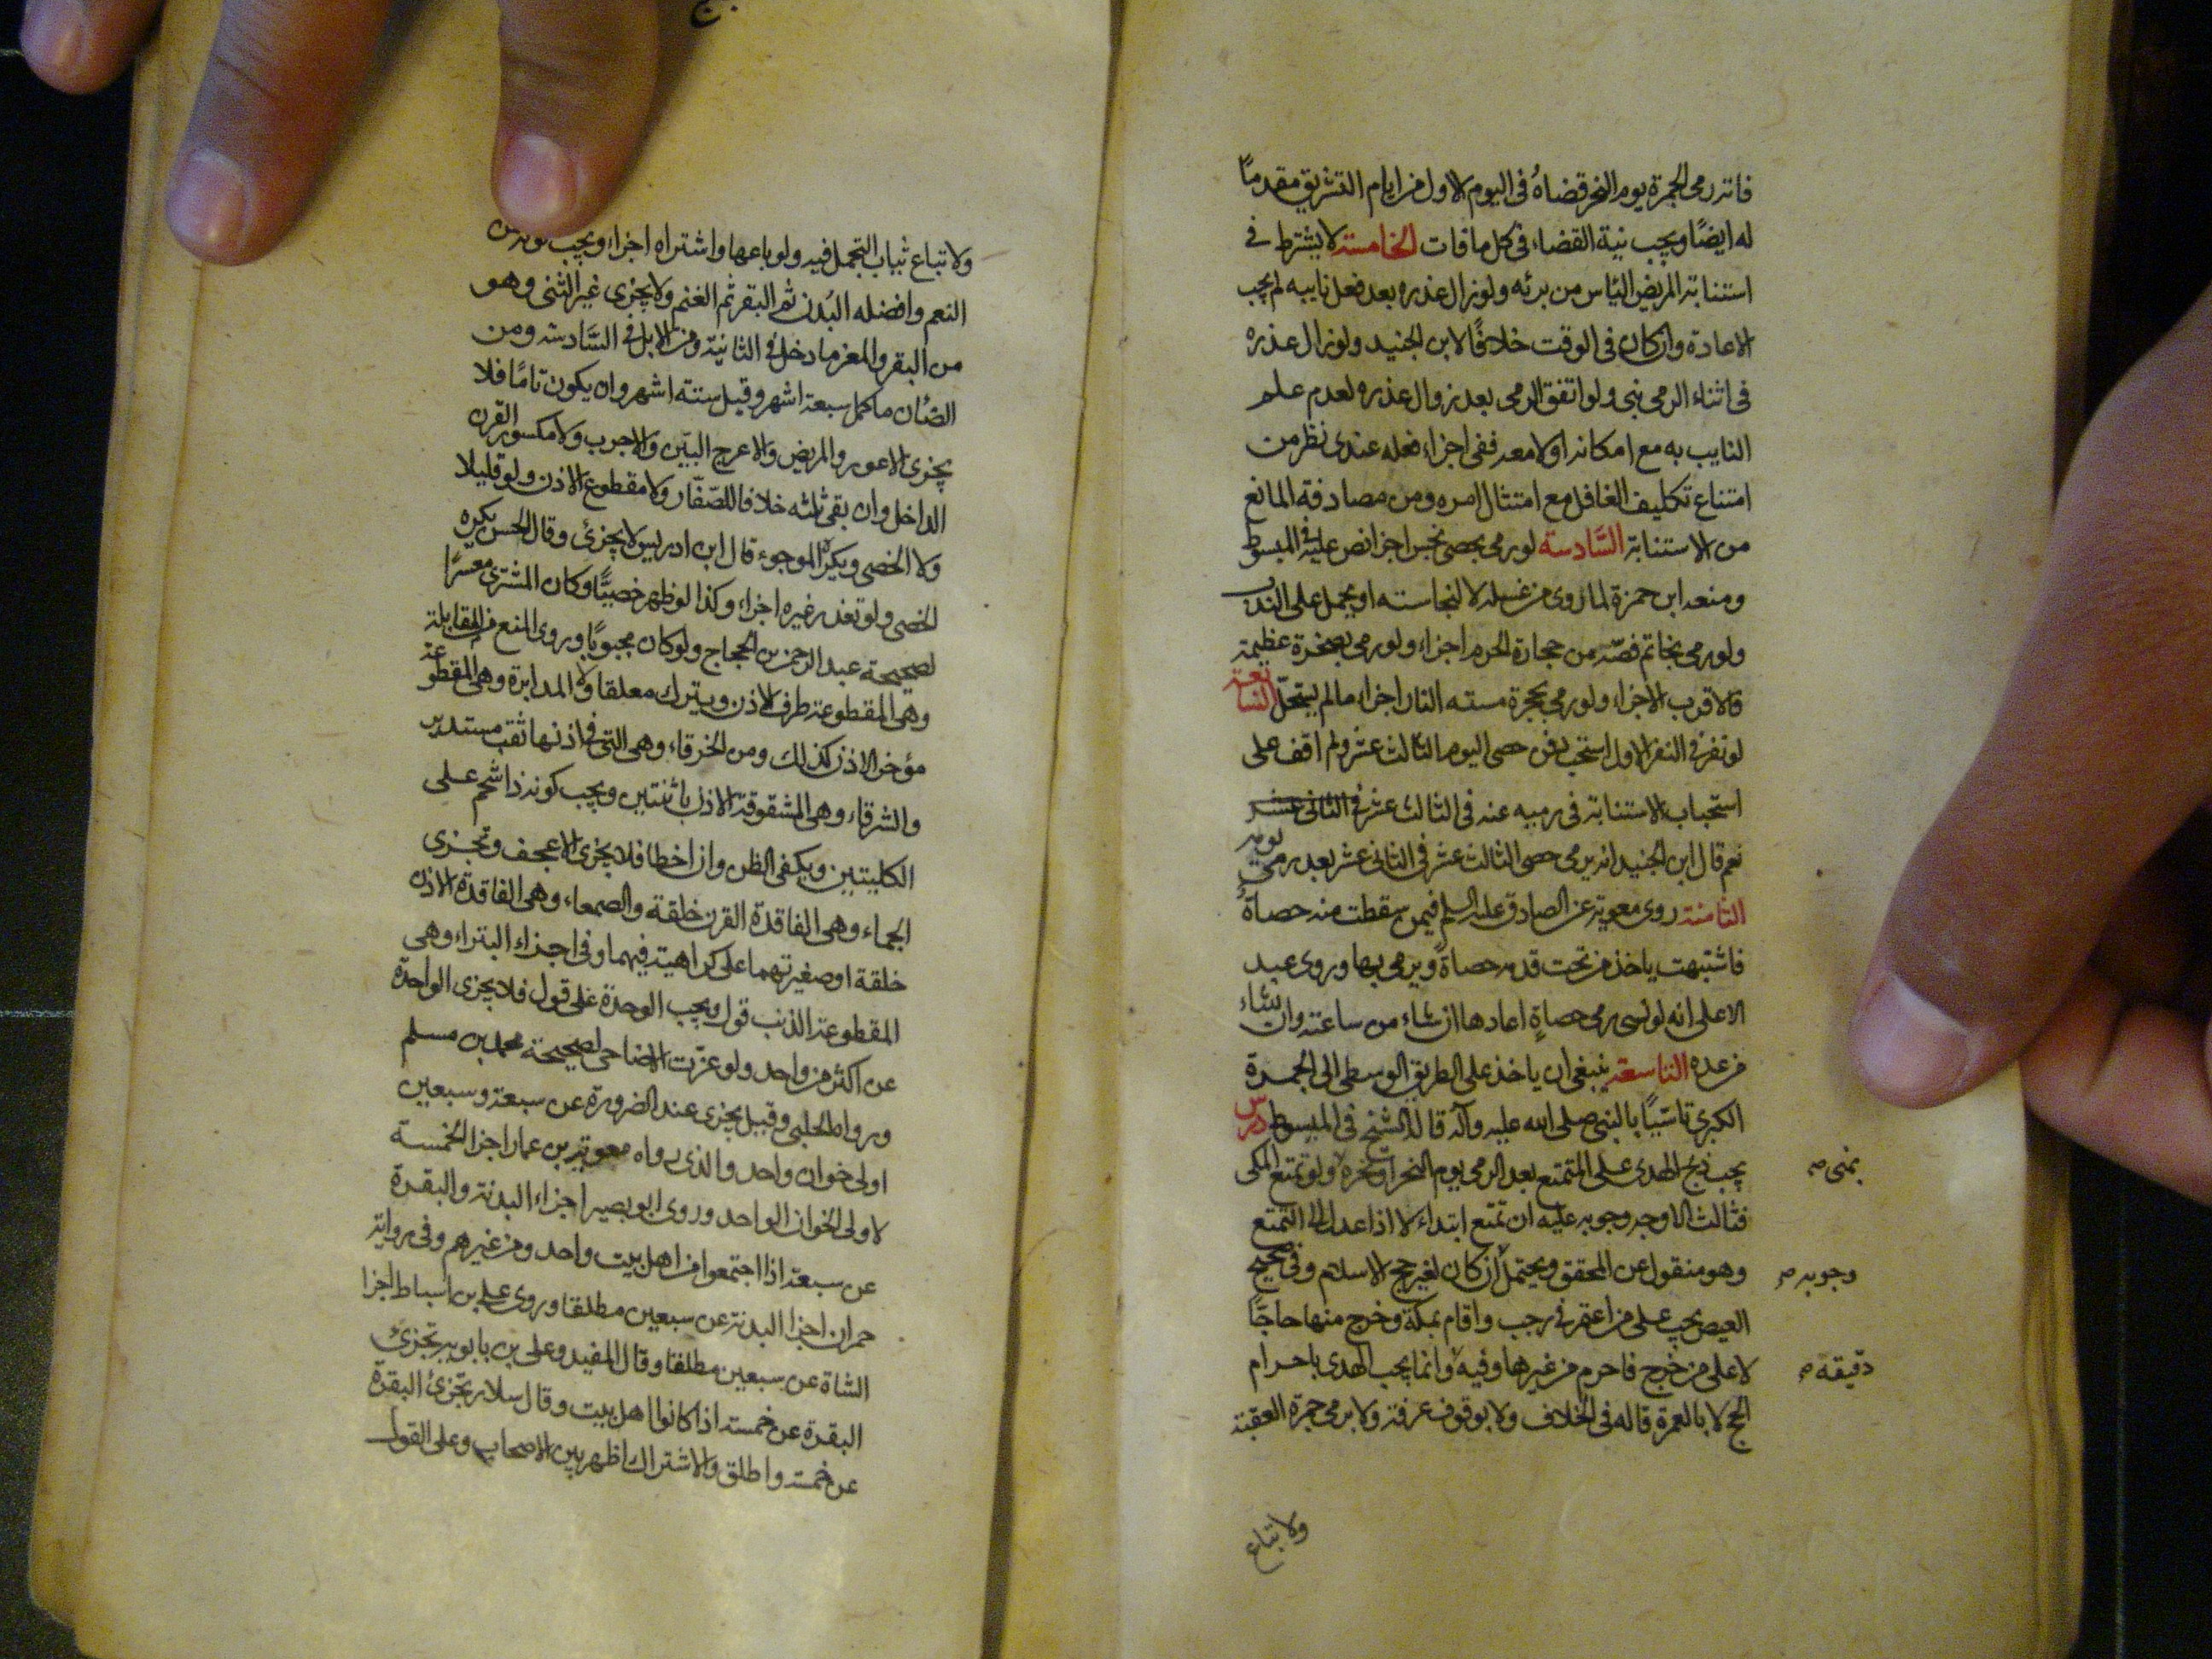 فاته رمى الجمرة يوم النحر قضاهُ فى اليوم الاول من ايام التشريق مقدماً
له ايضًا ويجب نية القضاء فى كل مافات الخامسة لا يشترط فى
استنابة المريض الياس من برئه ولو زال عذره بعد فعل نايبه لم يجب
الاعادة وان كان فى الوقت خلافًا لابن الجنيد ولو زال عذره
فى اثناء الرمى بنى ولو اتفق الرمى بعد زوال عذره لعدم علم
النايب به مع امكانه او لا معه ففى اجزاء فعله عندى نظر من
امتناع تكليف الغافل مع امتثال امره ومن مصادفة المانع
من الاستنابة السَّادسة لو رمى بحصى نجس اجزا نص عليه فى المبسوط
ومنعه ابن حمزة لما روى من غسله لا لنجاسته او يحمل على الندب
ولو رمى بخاتم فصّه من حجارة الحرم اجزاء ولو رمى بصخرة عظيمة
فالاقرب الاجزاء ولو رمى بحجرة مسته النار اجزاء ما لم يستحل السابعة
لو نفر فى النفر الاول استحب دفن حصى اليوم الثالث عشر ولم اقف على
استحباب الاستنابة فى رميه عنه فى الثالث عشر فى الثانى عشر
نعم قال ابن الجنيد انه يرمى حصى الثالث عشر فى الثانى عشر بعد رمى يومه
الثامنة روى معوية عن الصادق عليه السلم فيمن سقطت منه حصاةٌ
فاشتبهت ياخذ من تحت قدمه حصاةً ويرمى بها وروى عبد
الاعلى انه لو نسى رمى حصاةٍ اعادها ان شاء من ساعته وان شاء
من غده التاسعة ينبغى ان ياخذ على الطريق الوسطى الى الجمرة
الكبرى تاسّيًا بالنبى صلى الله عليه وآله قاله الشيخ فى المبسوط درس
يجب ذبح الهدى على المتمتع بعد الرمى يوم النحر او نحره ولو تمتع المكى
بمنى صح
فثالث الاوجه وجوبه عليه ان تمتع ابتداء لا اذا عدل الى التمتع
وهو منقول عن المحقق ويحتمل ان كان لغير حج الاسلام وفى صحيح
وجوبه صح
العيص يجب على من اعتمر فى رجب واقام بمكة وخرج منها حاجًا
لا على من خرج فاحرم من غيرها وفيه وانما يجب الهدى باحرام
دقيقه صح
الحج لا بالعمرة قاله فى الخلاف ولا بوقوف عرفة ولا برمى جمرة العقبة
ولا تباع
ولا تباع ثياب التجمل فيه ولو باعها واشتراه اجزاء ويجب كونه من
النعم وافضله البُدن ثم البقر ثم الغنم ولا يجزى غير الثنى وهو
من البقر والمعز ما دخل فى الثانية ومن الابل فى السَّادسة ومن
الضان ما كمل سبعة اشهر وقيل ستة اشهر وان يكون تامًا فلا
يجزى الاعور والمريض والاعرج البيّن والاجرب ولا مكسور القرن
الداخل وان بقى ثلثه خلافا للصّفّار ولا مقطوع الاذن ولو قليلا
ولا الخصى ويكره الموجوء قال ابن ادريس لا يجزئ وقال الحسن يكره
الخصى ولو تعذر غيره اجزاء وكذا لو ظهر خصيًّا وكان المشترى معسرًا
لصحيحة عبد الرحمن بن الحجاج ولو كان مجبوبًا وروى المنع من المقابلة
وهى المقطوعة طرف الاذن ويترك معلقا ولا المدابرة وهى المقطوعة
مؤخر الاذن كذلك ومن الخرقاء وهى التى فى اذنها ثقب مستدير
والشرقاء وهى المشقوقة الاذن باثنتين ويجب كونه ذا شحم على
الكليتين ويكفى الظن وان اخطا فلا يجزى الاعجف وتجزى
الجماء وهى الفاقدة القرن خلقة والصمعاء وهى الفاقدة الاذن
خلقة او صغيرتهما على كراهية فيهما وفى اجزاء البتراء وهى
المقطوعة الذنب قول ويجب الوحدة على قول فلا يجزى الواحدة
عن اكثر من واحد ولو عزّت الاضاحى لصحيحة محمد بن مسلم
ورواه الحلبى وقيل يجزى عند الضرورة عن سبعة وسبعين
اولى خوان واحد والذى رواه معوية بن عمار اجزا الخمسة
لاولى الخوان الواحد وروى ابو بصير اجزاء البدنة والبقرة
عن سبعة اذا اجتمعوا من اهل بيت واحد ومن غيرهم وفى رواية
حمران اجزا البدنة عن سبعين مطلقا وروى على بن اسباط اجزا
الشاة عن سبعين مطلقا وقال المفيد وعلى بن بابويه تجزئ
البقرة عن خمسة اذا كانوا اهل بيت وقال سلار تجزئ البقرة
عن خمسة واطلق والاشتراك اظهر بين الاصحاب وعلى القول